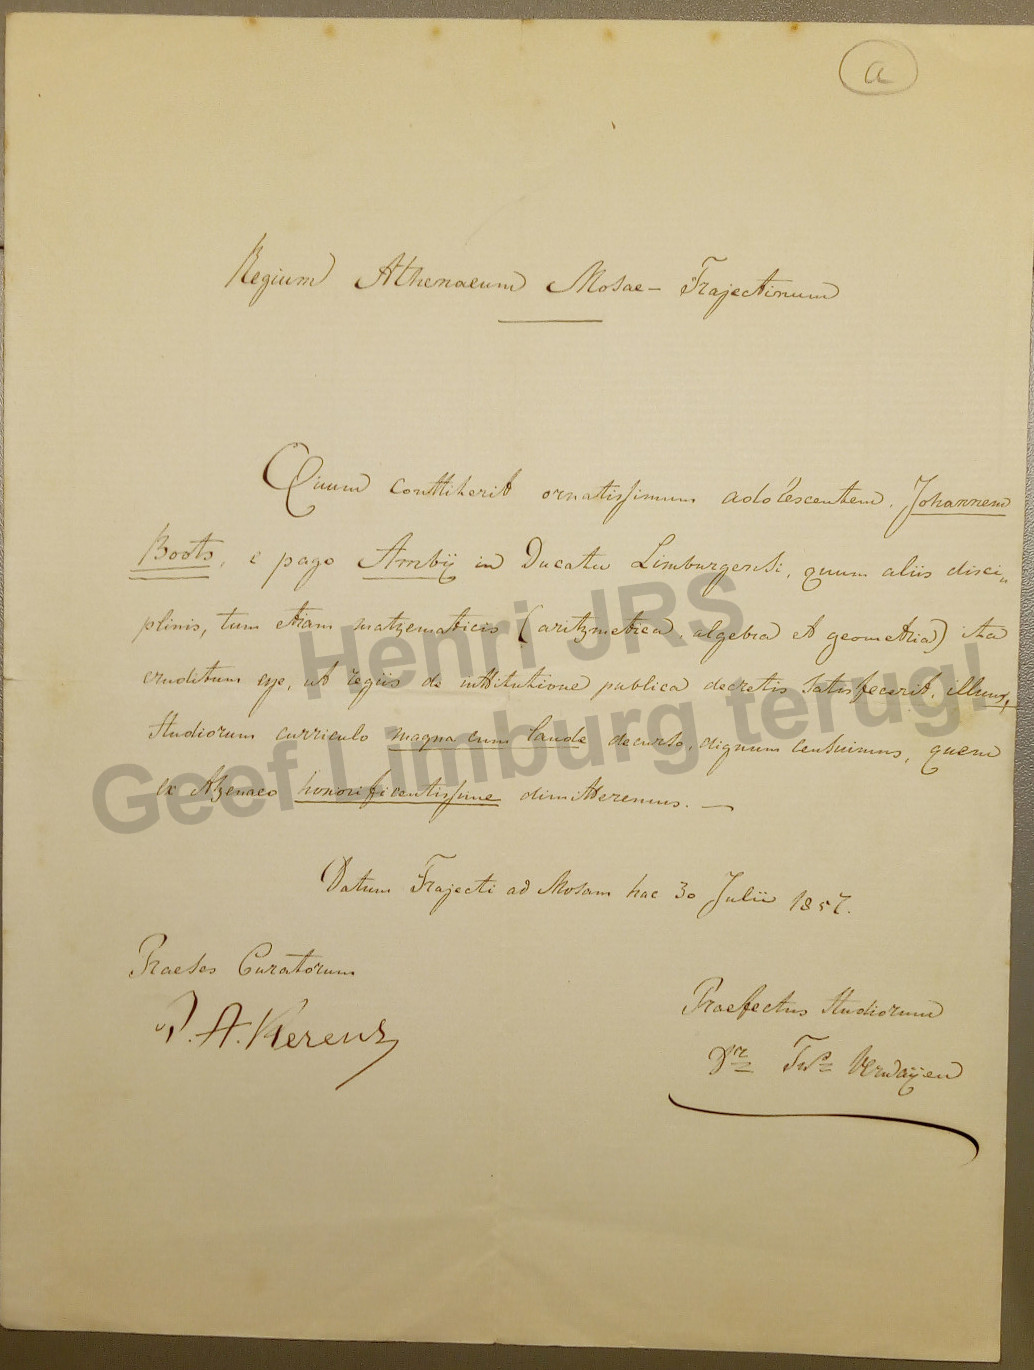 a
Regium Athenaeum Mosae-Trajectinum
Quum constiterit ornatissimum adolescentem, Johannem
Boots, e pago Ambij in Ducatu Limburgensi, quum aliis disci„
plinis, tum etiam mathematicis (arithmetica, algebra et geometria) ita
eruditum esse, ut regiis de institutione publica decretis satisfecerit, illum,
studiorum curriculo magna cum laude decurso, dignum censuimus, quem
ex Athenaeo honorificentissime dimitteremus. —
Datum Trajecti ad Mosam hac 30 Julii 1857.
Praeses Curatorum
P. A. Kerens
Praefectus Studiorum
Dr Verwayen
Henri JRS
Geef Limburg terug!